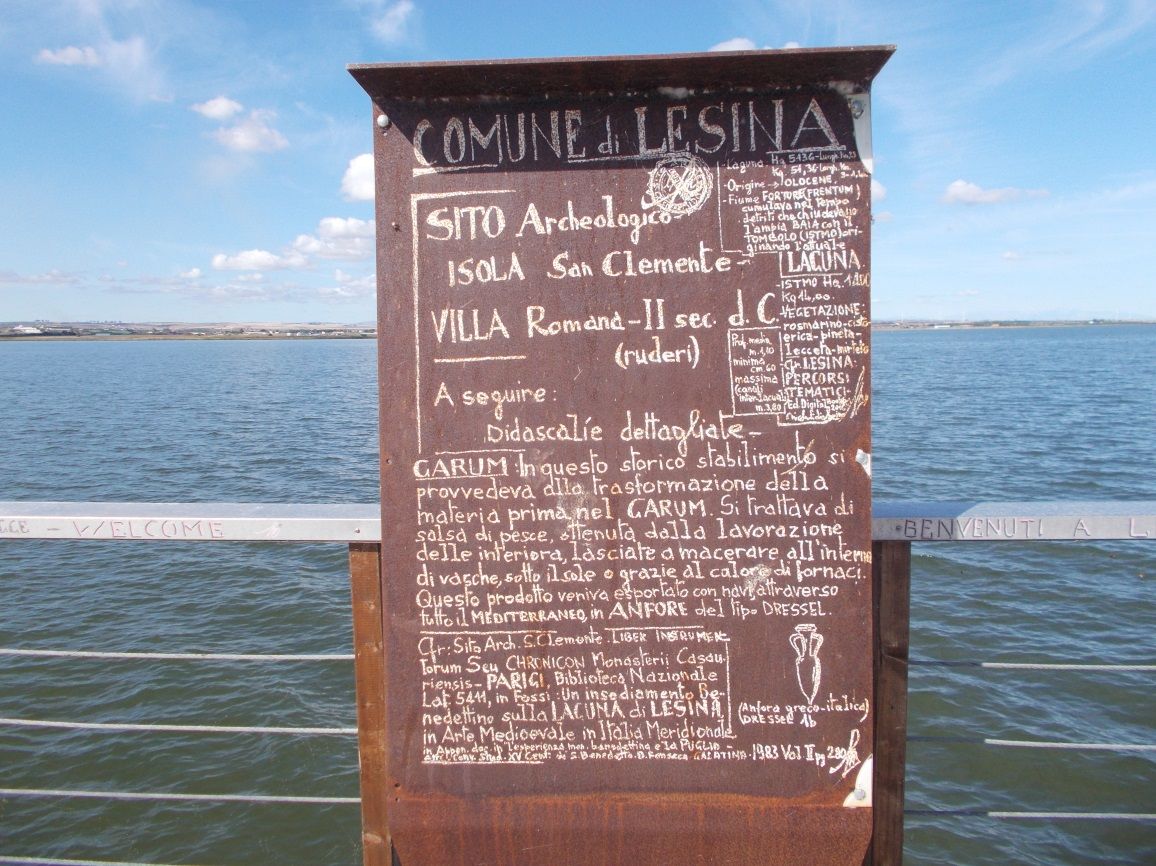 COMUNE di LESINA
SITO Archeologico
ISOLA San Clemente -
VILLA Romana - II sec. d. C.
(ruderi)
A seguire:
Didascalíe dettagliate -
Laguna Ha 5136
Kq. 51,36
- Origine → OLOCENE
- Fiume FORTORE (FRENTUM)
cumulava nel tempo
detriti che chiudevano
l'ampia BAIA con il
TOMBOLO (ISTMO) ori-
ginando l'attuale
LAGUNA
ISTMO Ha.
Kq 14,00.
VEGETAZIONE:
rosmarino-cisto
erica-pineta-
Lecceta-mirteto
Cfr. LESINA:
PERCORSI
TEMATICI-
Ed. Digital
Prof. media
m. 1,10
minima
cm. 60
massima
(canali
m. 3,80
GARUM: In questo storico stabilimento si
provvedeva alla trasformazione della
materia prima nel GARUM. Si trattava di
salsa di pesce, ottenuta dalla lavorazione
delle interiora, lasciate a macerare all'interno
di vasche, sotto il sole o grazie al calore di fornaci.
Questo prodotto veniva esportato con navi attraverso
tutto il MEDITERRANEO, in ANFORE del tipo DRESSEL.
Cfr. Sito Arch. S. Clemente. LIBER INSTRUMEN-
Torum Seu CHRONICON Monasterii Casau-
riensis - PARIGI, Biblioteca Nazionale
Lat. 5411, in Fossi: Un insediamento Be-
nedettino sulla LAGUNA di LESINA,
in Arte Medioevale in Italia Meridionale
in Appen. doc. in l'esperienza mon. benedettina e la PUGLIA -
Atti Conv. Stud. XV Cent. di S. Benedetto. B. Fonseca GALATINA - 1983 Vol II pg 280
(Anfora greco-italica)
(DRESSEL 1b
- WELCOME
BENVENUTI A L